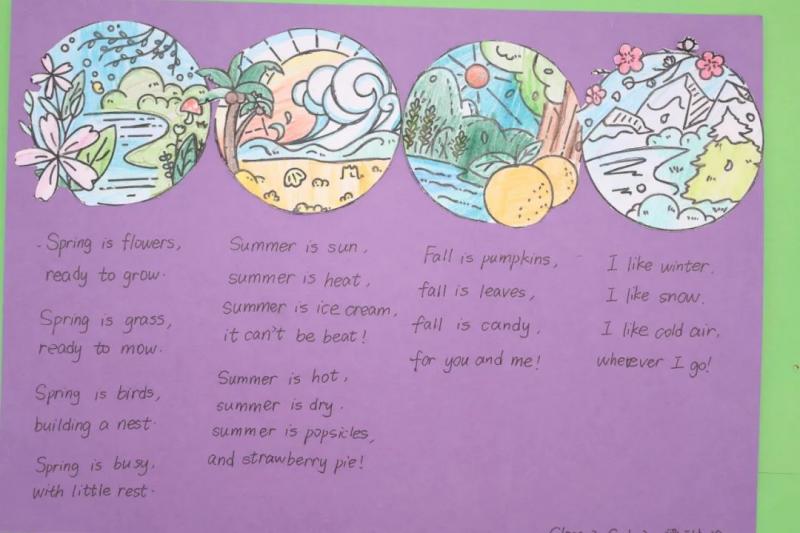 Spring is flowers,
ready to grow.
Spring is grass,
ready to mow.
Spring is birds,
building a nest.
Spring is busy.
with little rest.
Summer is sun,
summer is heat,
Summer is ice cream,
it can't be beat!
Summer is hot,
summer is dry.
summer is popsicles,
and strawberry pie!
Fall is pumpkins,
fall is leaves,
fall is candy,
for you and me!
I like winter.
I like snow.
I like cold air,
wherever I go!